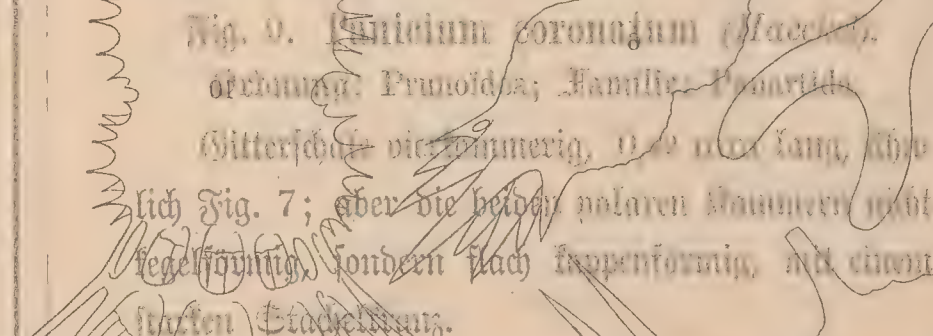 Fig. 9. Panicium coronatum (Haeckel).
Ordnung: Prunoidea; Familie: Panartida.
Gitterschale vierkammerig, 0,2 mm lang, ähn
lich Fig. 7; aber die beiden polaren Kammern nicht
kegelförmig, sondern flach kappenförmig, mit einem
starken Stachelkranz.